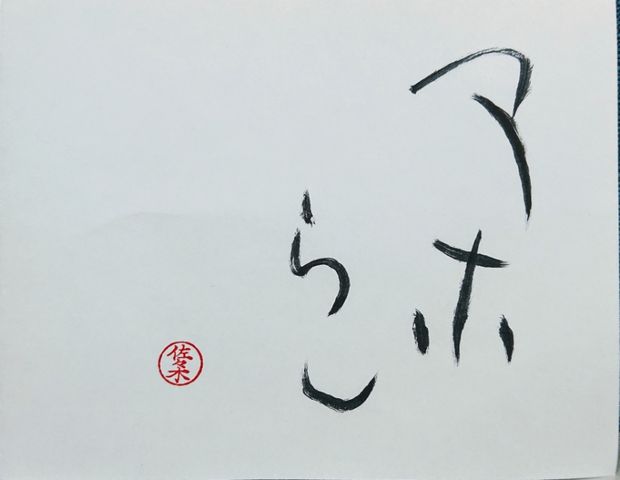 アホ
らし
佐々木